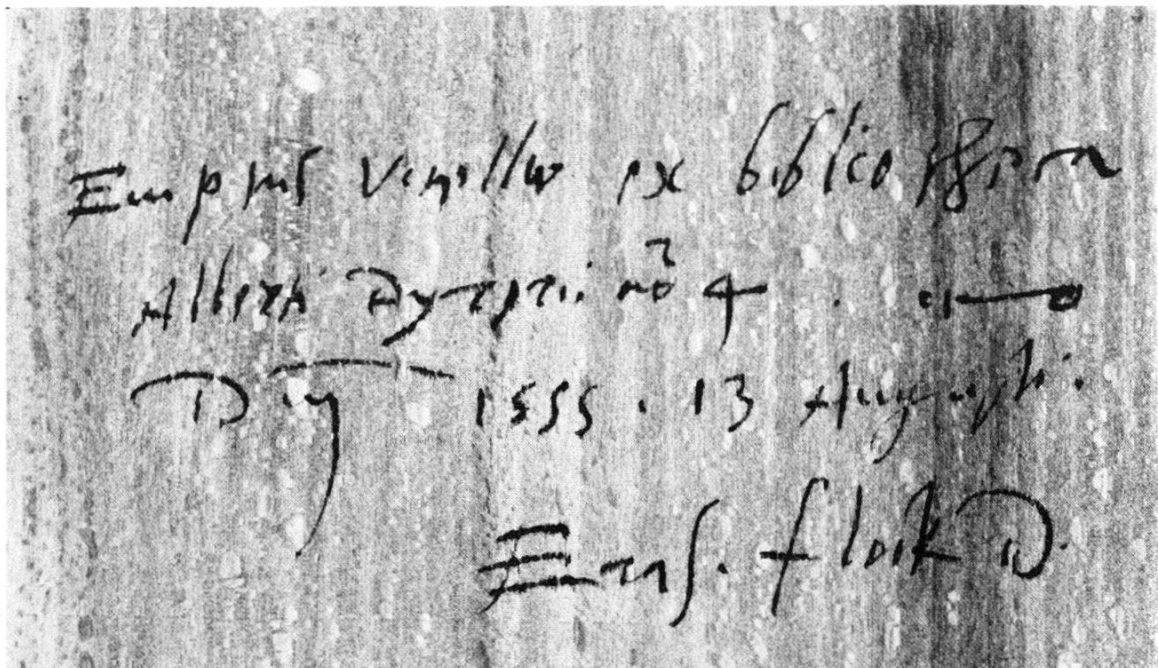 Emptus Vitellio ex bibliotheca
Alberti Dureri 4
1555 . 13 Augusti.
Eras. flock D.